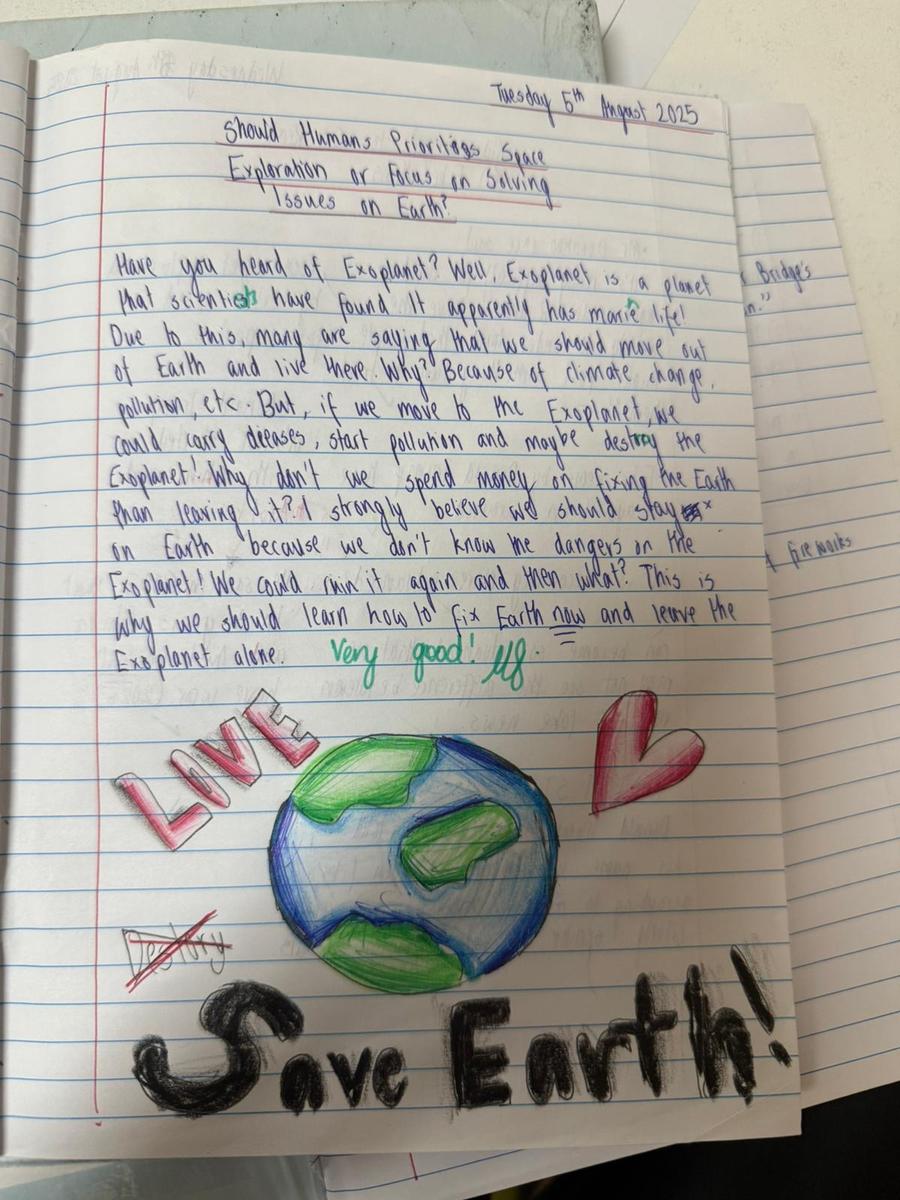 Tuesday 5th August 2025
Should Humans Prioritise Space
Exploration or Focus on Solving
Issues on Earth?
Have you heard of Exoplanet? Well, Exoplanet is a planet
that scientists have found. It apparently has marine life!
Due to this, many are saying that we should move out
of Earth and live there. Why? Because of climate change,
pollution, etc. But, if we move to the Exoplanet, we
could carry dieases, start pollution and maybe destroy the
Exoplanet! Why don't we spend money on fixing the Earth
than leaving it? I strongly believe we should stay
on Earth because we don't know the dangers on the
Exoplanet! We could ruin it again and then what? This is
why we should learn how to fix Earth now and leave the
Exoplanet alone. Very good!
LIVE
Destory
Save Earth!
Bridge's
n."
fireworks